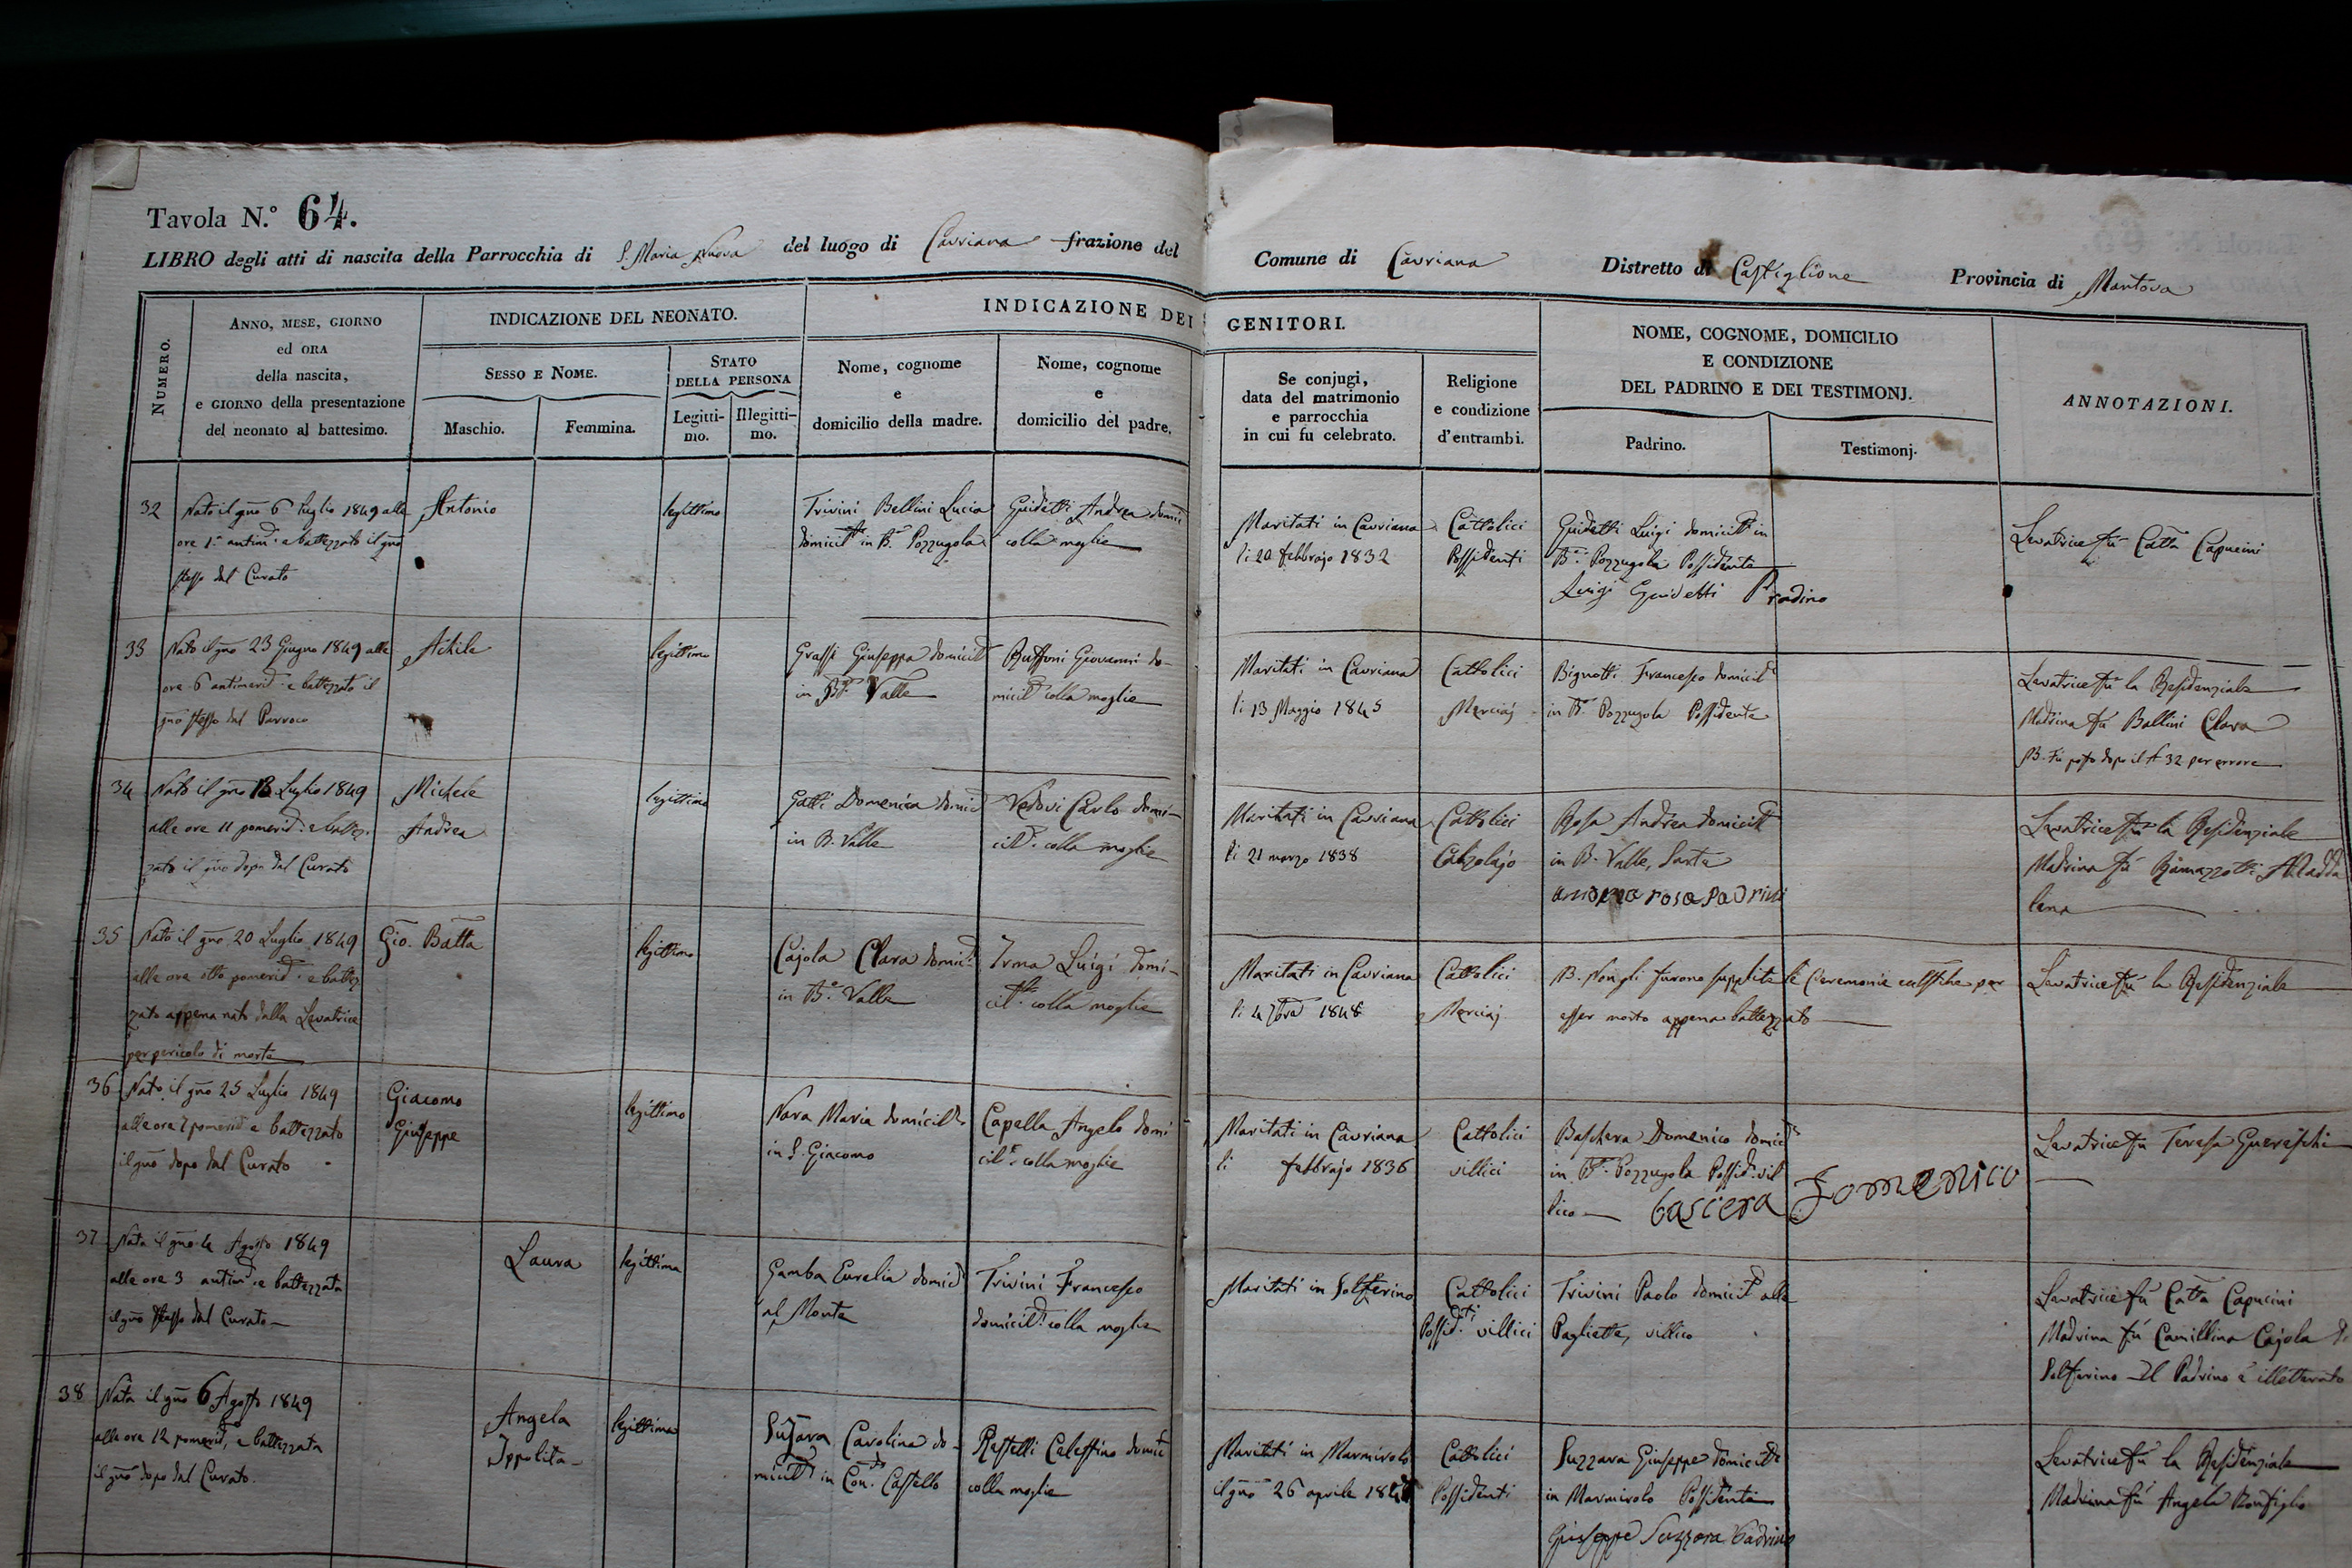 Tavola N.° 64.
LIBRO degli atti di nascita della Parrocchia di S. Maria Nuova del luogo di Cavriana frazione del Comune di Cavriana Distretto di Castiglione Provincia di Mantova
NUMERO.
ANNO, MESE, GIORNO
ed ORA
della nascita,
e GIORNO della presentazione
del neonato al battesimo.
INDICAZIONE DEL NEONATO.
SESSO E NOME.
Maschio.
Femmina.
STATO
DELLA PERSONA
Legitti-
mo.
Illegitti-
mo.
INDICAZIONE DEI GENITORI.
Nome, cognome
e
domicilio della madre.
Nome, cognome
e
domicilio del padre.
Se conjugi,
data del matrimonio
e parrocchia
in cui fu celebrato.
Religione
e condizione
d'entrambi.
NOME, COGNOME, DOMICILIO
E CONDIZIONE
DEL PADRINO E DEI TESTIMONJ.
Padrino.
Testimonj.
ANNOTAZIONI.
32
Nato il gno 6 luglio 1849 alle
ore 1. antim. e battezzato il gno
stesso dal Curato
Antonio
legittimo
Trivini Bellini Lucia
domicil. in B. Pozzugola
Guidetti Andrea domi
colla moglie
Maritati in Cavriana
li 20 febbrajo 1832
Cattolici
Possidenti
Guidetti Luigi domicil. in
B. Pozzugola Possidente
Luigi Guidetti Pradino
Levatrice fù Catta Capucini
33
Nato il gno 23 Giugno 1849 alle
ore 6 antimerid. e battezzato il
gno stesso dal Parroco
Achile
legittimo
Grassi Giuseppa domicil.
in B. Valle
Buffoni Giovanni do-
micil. colla moglie
Maritati in Cavriana
li 13 Maggio 1845
Cattolici
Merciaj
Bignotti Francesco domicil.
in B. Pozzugola Possidente
Levatrice fù la Residenziale
Madrina fù Ballini Clara
B. Fù posto dopo il N 32 per errore
34
Nato il gno 13 Luglio 1849
alle ore 11 pomerid. e battez-
zato il gno dopo dal Curato
Michele
Andrea
legittimo
Gatti Domenica domicil.
in B. Valle
Vedovi Carlo domi-
cil. colla moglie
Maritati in Cavriana
li 21 marzo 1838
Cattolici
Calzolajo
Rosa Andrea domicil.
in B. Valle, Sarta
andrea rosa padrino
Levatrice fù la Residenziale
Madrina fù Ramazzotti Madda
lena
35
Nato il gno 20 Luglio 1849
alle ore otto pomerid. e battez
zato appena nato dalla Levatrice
per pericolo di morte
Gio. Batta
legittimo
Cajola Clara domic.
in B. Valle
Irma Luigi domi-
cil. colla moglie
Maritati in Cavriana
li 4 7bre 1848
Cattolici
Merciaj
B. Non gli furono supplite le Ceremonie per
esser morto appena battezzato
Levatrice fù la Residenziale
36
Nato il gno 25 Luglio 1849
alle ore 7 pomerid. e battezzato
il gno dopo dal Curato
Giacomo
Giuseppe
legittimo
Nara Maria domicil.
in S. Giacomo
Capella Angelo domi
cil. colla moglie
Maritati in Cavriana
li febbrajo 1836
Cattolici
villici
Baschera Domenico domicil.
in B. Pozzugola Possid. vil
lico
basciera Domenico
Levatrice fù Teresa Guereschi
37
Nata il gno 4 Agosto 1849
alle ore 3 antim. e battezzata
il gno stesso dal Curato
Laura
legittima
Gamba Eurelia domicil.
al Monte
Trivini Francesco
domicil. colla moglie
Maritati in Solferino
Cattolici
Possid.ti villici
Trivini Paolo domicil. alle
Pagliette, villico
Levatrice fù Catta Capucini
Madrina fù Camillina Cajola di
Solferino Il Padrino è illetterato
38
Nata il gno 6 Agosto 1849
alle ore 12 pomerid. e battezzata
il gno dopo dal Curato.
Angela
Ippolita
legittima
Suzara Carolina do-
micil. in Con. Castello
Restelli Celestino domic
colla moglie
Maritati in Marmirolo
il gno 26 aprile
Cattolici
Possidenti
Suzzara Giuseppe domicil.
in Marmirolo Possidente
Giuseppe Suzzara Padrino
Levatrice fù la Residenziale
Madrina fù Angela Bonfiglio